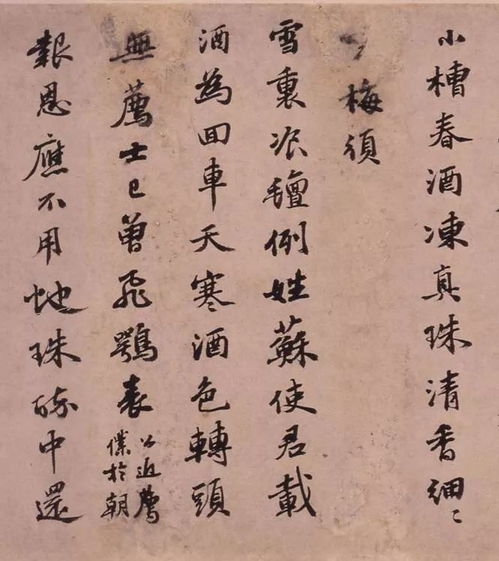 小槽春酒凍真珠清香細〻
梅須
雪裏飡氊例姓蘇使君載
酒為回車天寒酒色轉頭
無薦士已曾飛鶚表公近薦僕於朝
報恩應不用蛇珠醉中還